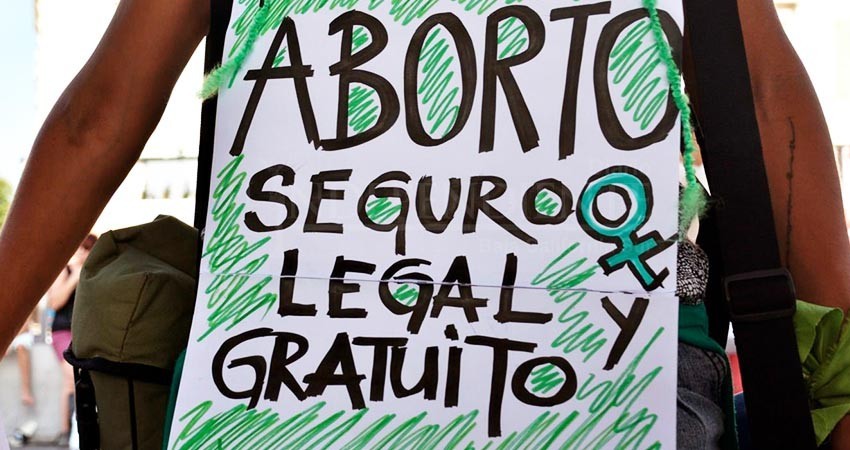 ABORTO
SEGURO
LEGAL Y
GRATUITO